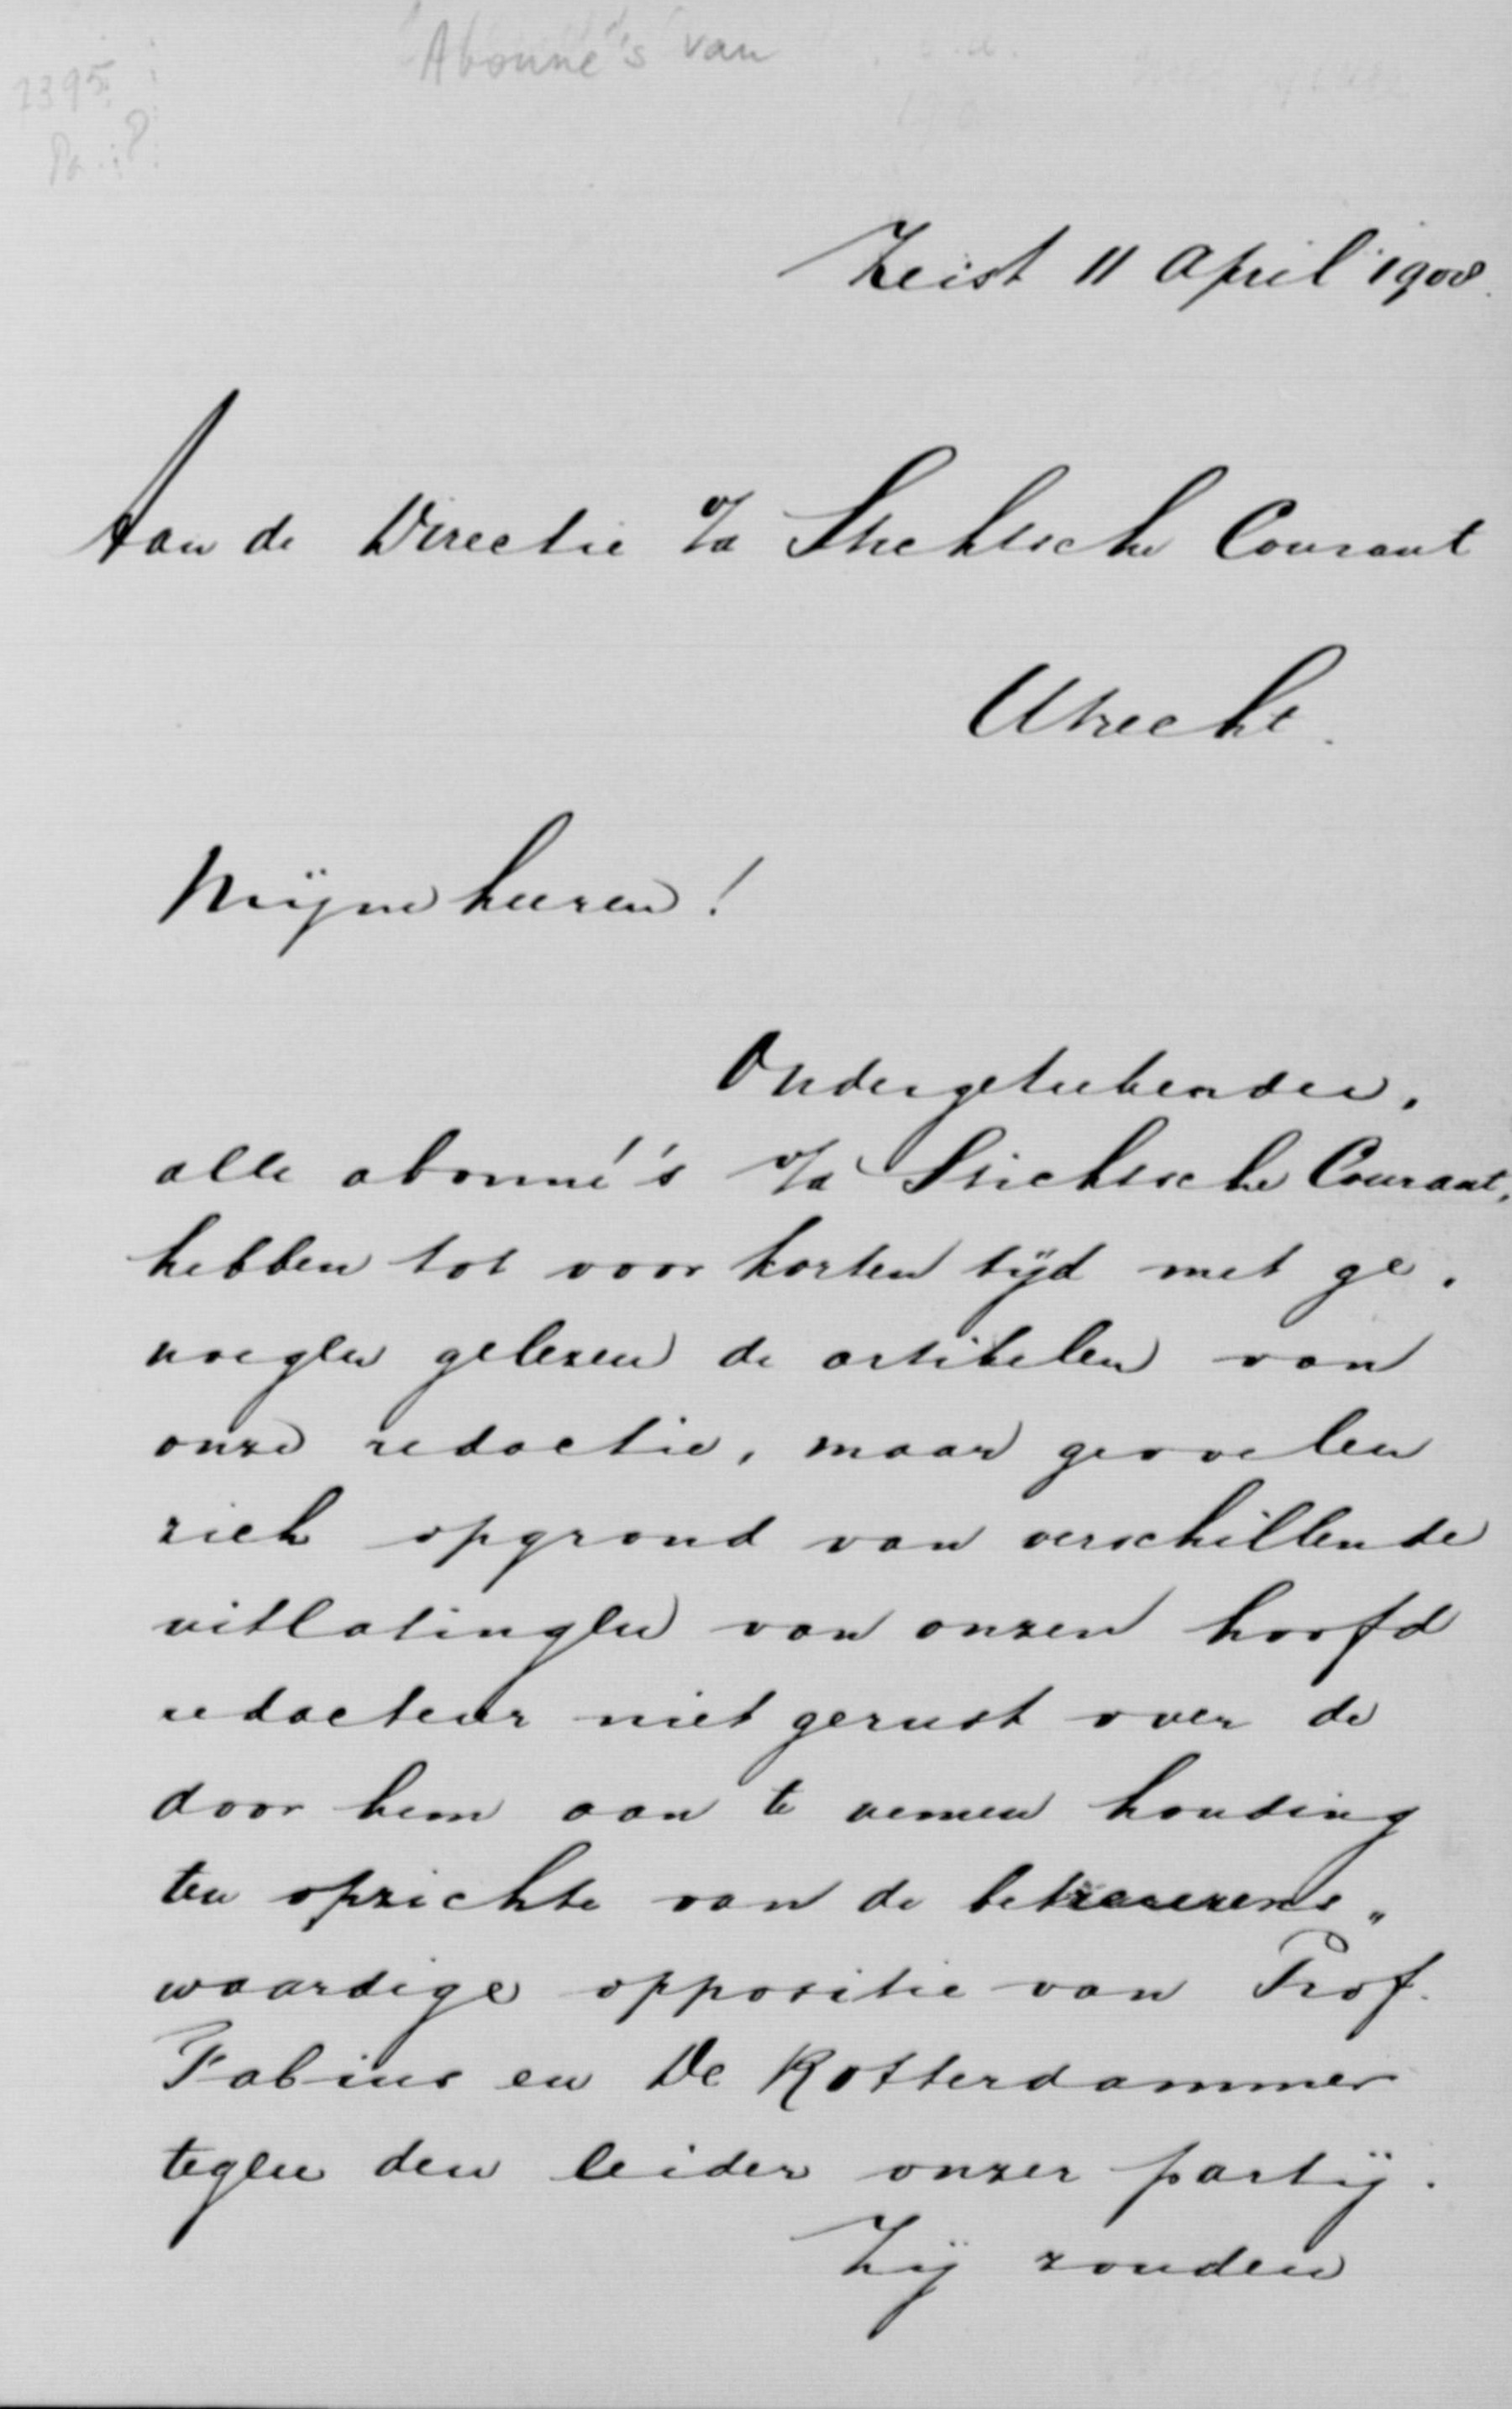 Abonné's van
Zeist 11 April 1908.
Aan de Directie v/d Stichtsche Courant
Utrecht.
Mijne heeren!
Ondergeteekenden,
alle abonné's v/d Stichtsche Courant,
hebben tot voor korten tijd met ge„
noegen gelezen de artikelen van
onze redactie, maar gevoelen
zich op grond van verschillende
uitlatingen van onzen hoofd
redacteur niet gerust over de
door hem aan te nemen houding
ten opzichte van de betreurens„
waardige oppositie van Prof.
Fabius en De Rotterdammer
tegen den leider onzer partij.
Zij zouden